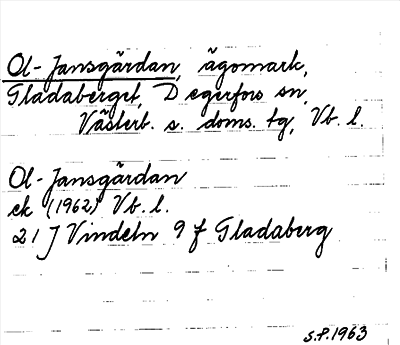 Ol-Jansgärdan, ägomark,
Gladaberget, Degerfors sn,
Västerb. s. doms. tg, Vb. l.
Ol-Jansgärdan
ek (1962) Vb. l.
21 J Vindeln 9 f Gladaberg
S.P. 1963